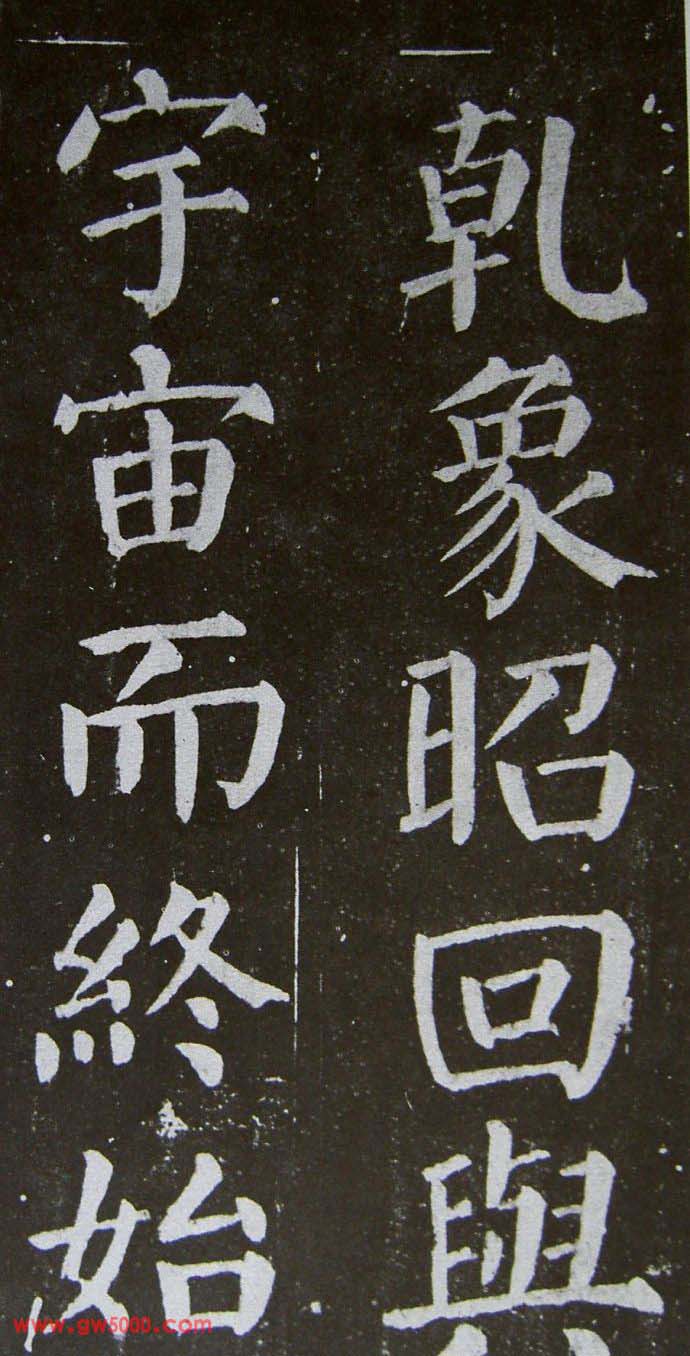 乹象昭回與
宇宙而終始
www.gw5000.com